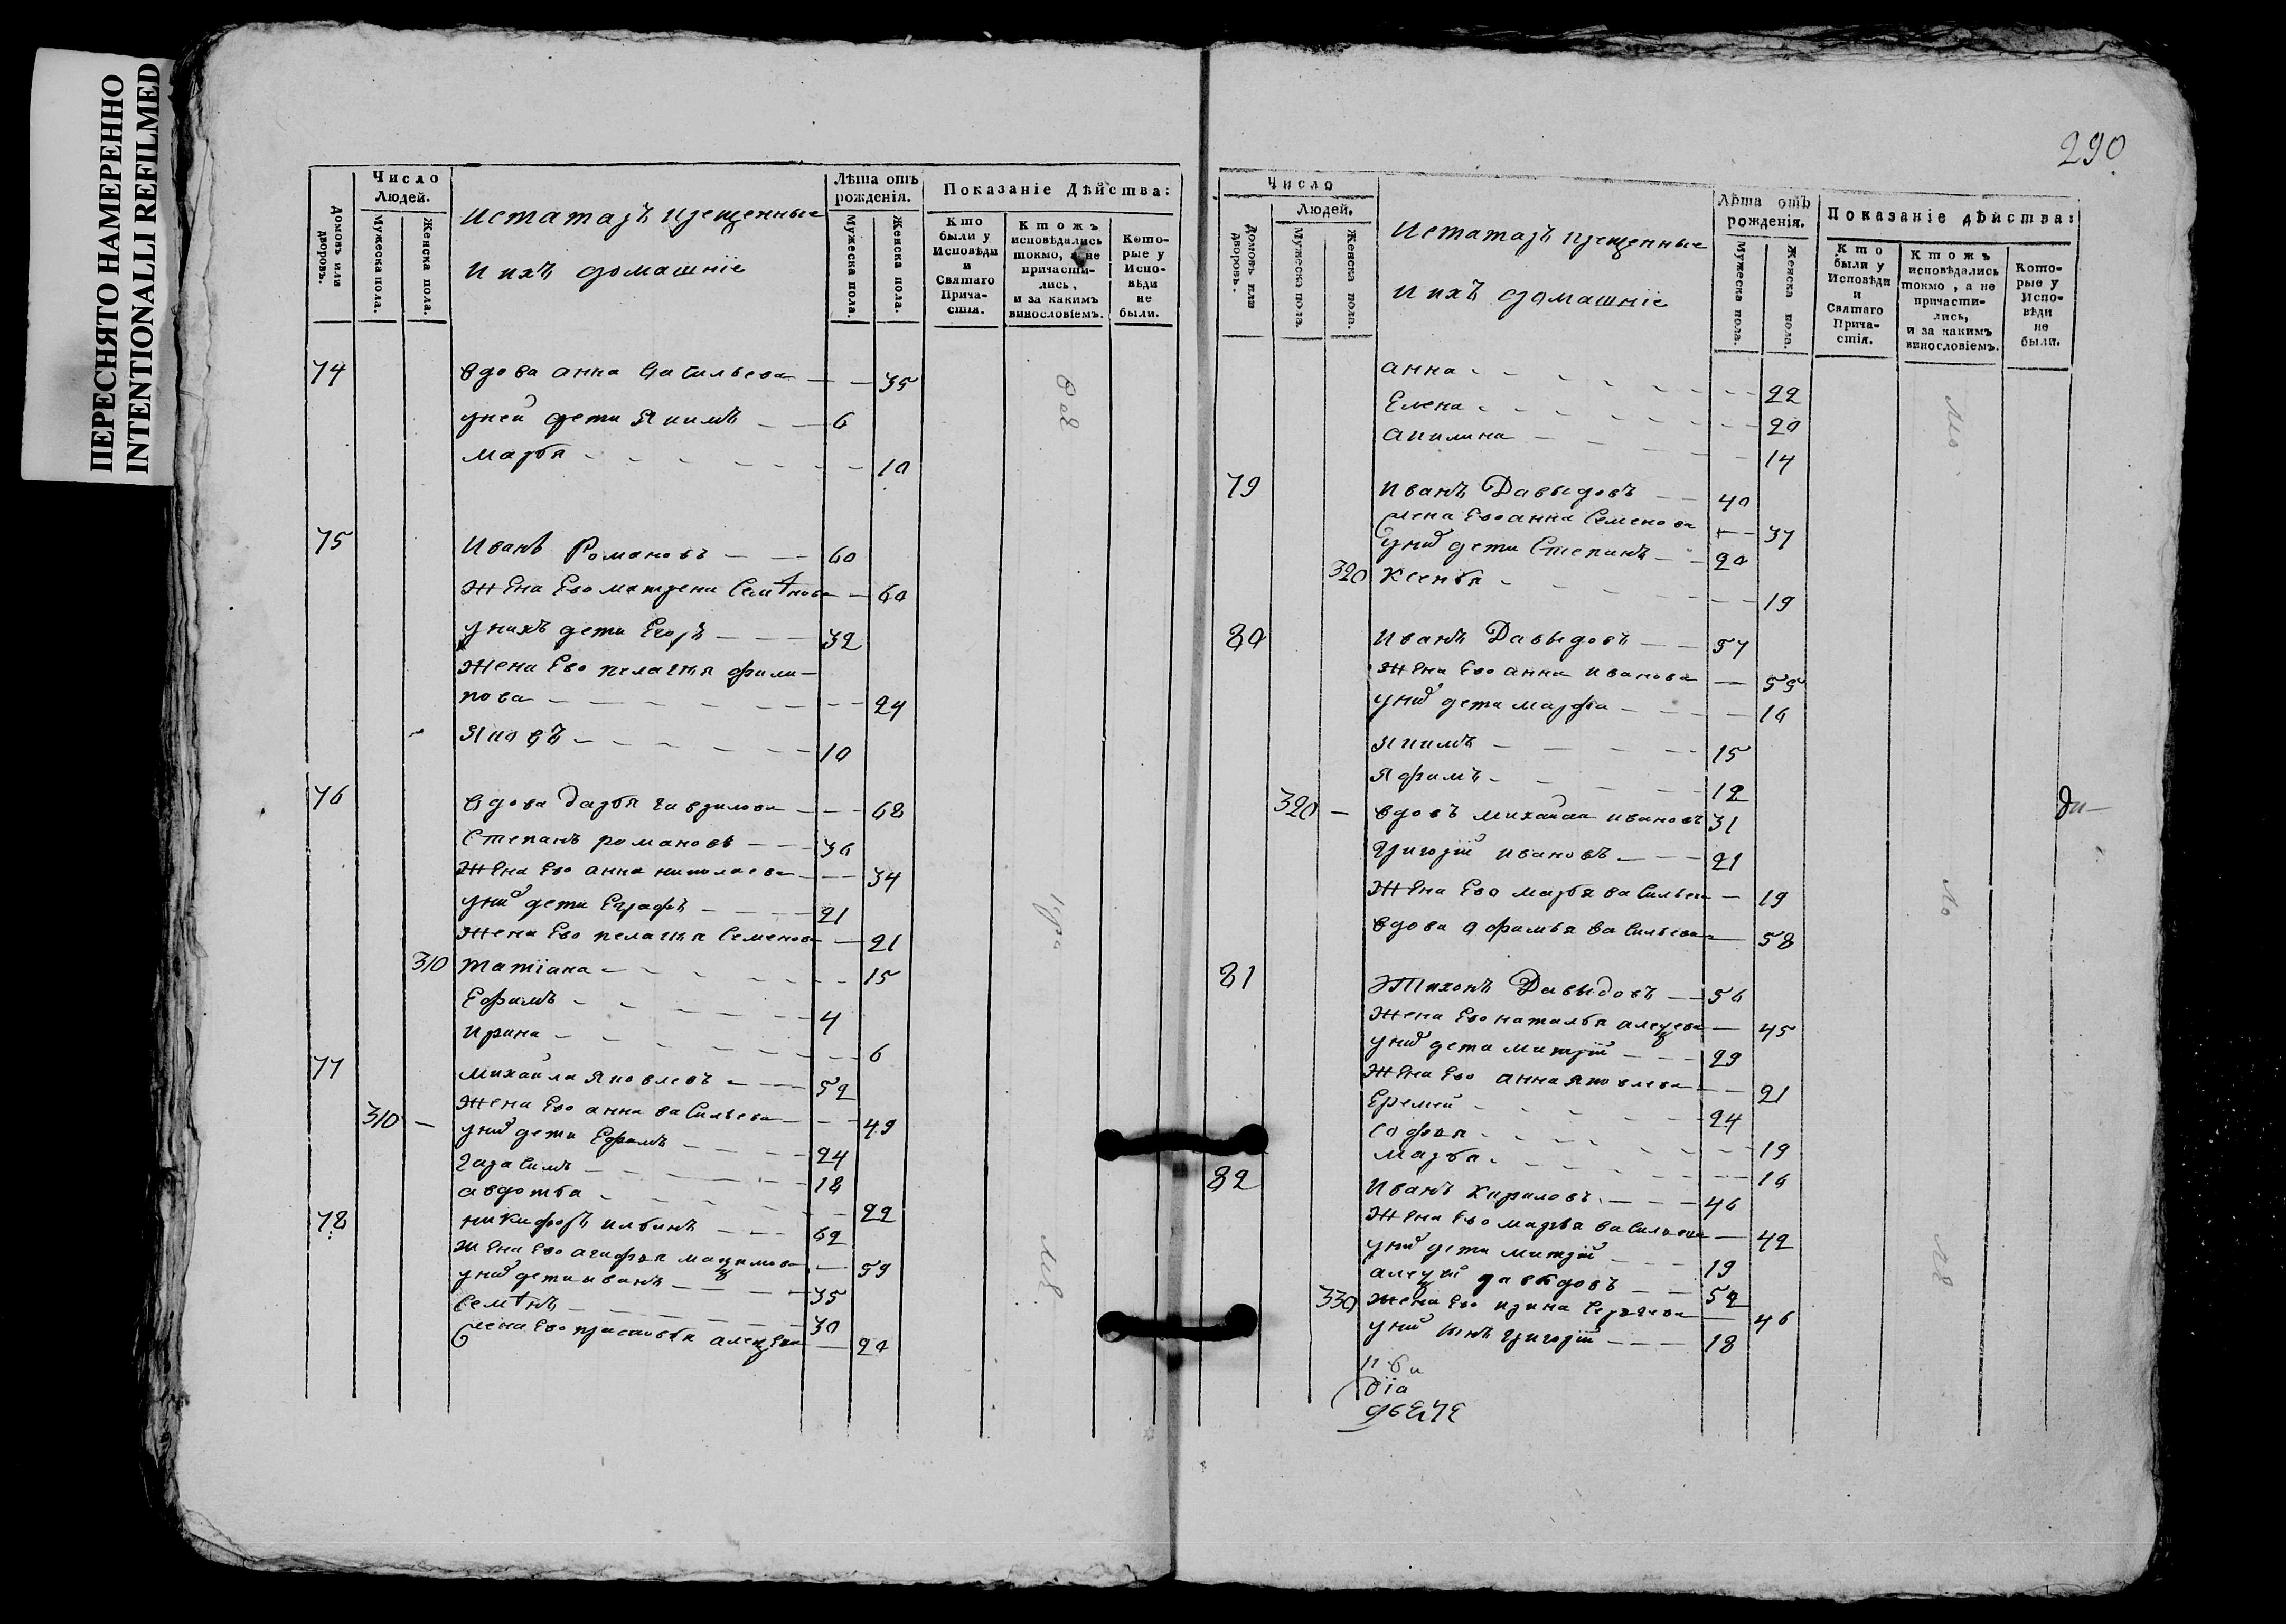 ПЕРЕСНЯТО НАМЕРЕННО
INTENTIONALLI REFILMED
Домовъ или дворовъ.
Число Людей.
Мужеска пола.
Женска пола.
домашніе
Лѣта отъ рожденія.
Мужеска пола.
Женска пола.
Показаніе Дѣйства:
Кто были у Исповѣди и Святаго Прича-стія.
Ктожъ исповѣдались токмо, а не причасти-лись, и за какимъ винословіемъ.
Кото-рые у Испо-вѣди не были.
74 вдова анна васильева 35
уней дети Якимъ 6
марья 10
75 Иванъ Романовъ 60
жена Ево матрена Семѣнова 60
унихъ дети Егоръ 32
жена Ево пелагия фили-
пова 24
Яковъ 10
76 вдова дарья гаврилова 68
Степанъ романовъ 36
жена Ево анна николаева 34
дети 21
жена Ево пелагия Семенова 21
310 татiана 15
Ефимъ 4
ирина 6
77 михаила Яковлевъ 52
310 жена Ево анна васильева 49
дети Ефимъ 24
гарасимъ 18
авдотья 22
78 никифоръ ильинъ 62
жена Ево агафья 59
дети иванъ 35
Семѣнъ 30
жена Ево прасковья 20
290
Число
Домовъ или дворовъ.
Людей.
Мужеска пола.
Женска пола.
и ихъ домашніе
Лѣта отъ рожденія.
Мужеска пола.
Женска пола.
Показаніе дѣйства:
Кто были у Исповѣди и Святаго Прича-стія.
Ктожъ исповѣдались токмо, а не причасти-лись, и за какимъ винословіемъ.
Кото-рые у Испо-вѣди не были.
анна 22
Елена 20
акилина 14
79 иванъ Давыдовъ 40
жена Ево анна Семенова 37
дети Степанъ 20
320 Ксенья 19
80 иванъ Давыдовъ 57
жена Ево анна иванова 55
дети марфа 16
Якимъ 15
Яфимъ 12
320 вдовъ михаила ивановъ 31
григорій ивановъ 21
жена Ево марья васильева 19
вдова афимья васильева 58
81 Тихонъ Давыдовъ 56
жена Ево наталья 45
дети митрій 29
жена Ево анна яковлева 21
Еремей 24
Софья 19
марья 16
82 иванъ Кириловъ 46
жена Ево марья васильева 42
дети митрій 19
давыдовъ 52
330 жена Ево ирина Сергеева 46
сынъ григорій 18